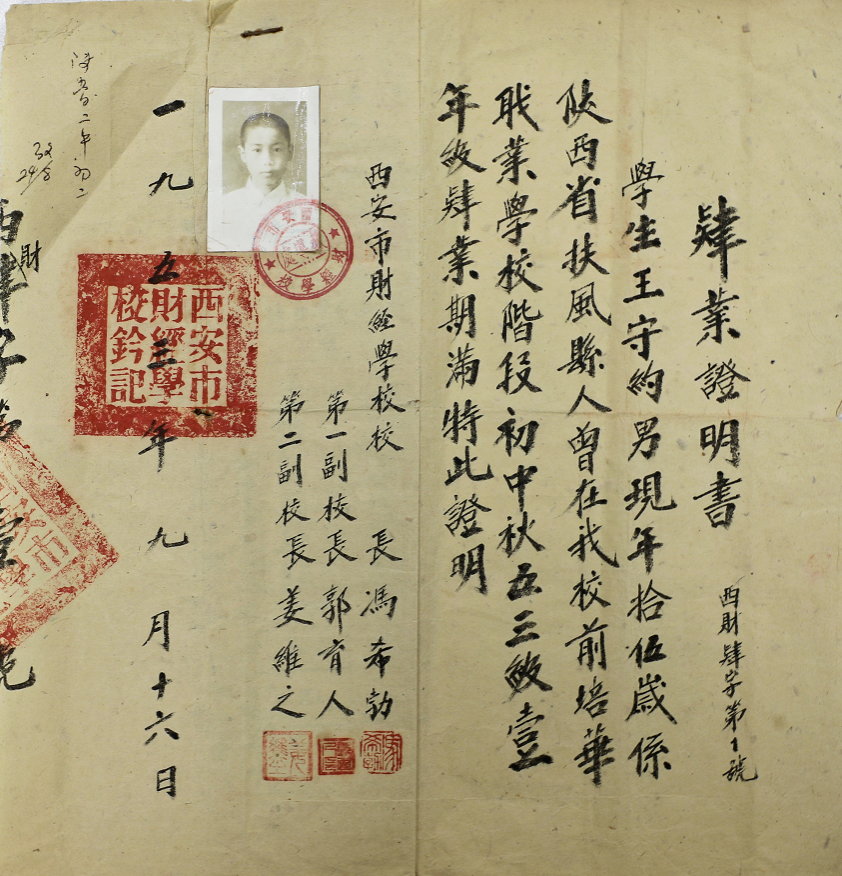 肄業證明書
西財肄字第1號
學生王守約男現年拾伍歲係
陜西省扶風縣人曾在我校前培華
職業學校階段初中秋五三級壹
年級肄業期滿特此證明
西安市財經學校校長馮希勃
第一副校長郭育人
第二副校長姜維之
一九五三年九月十六日
西安市財經學校鈐記
財